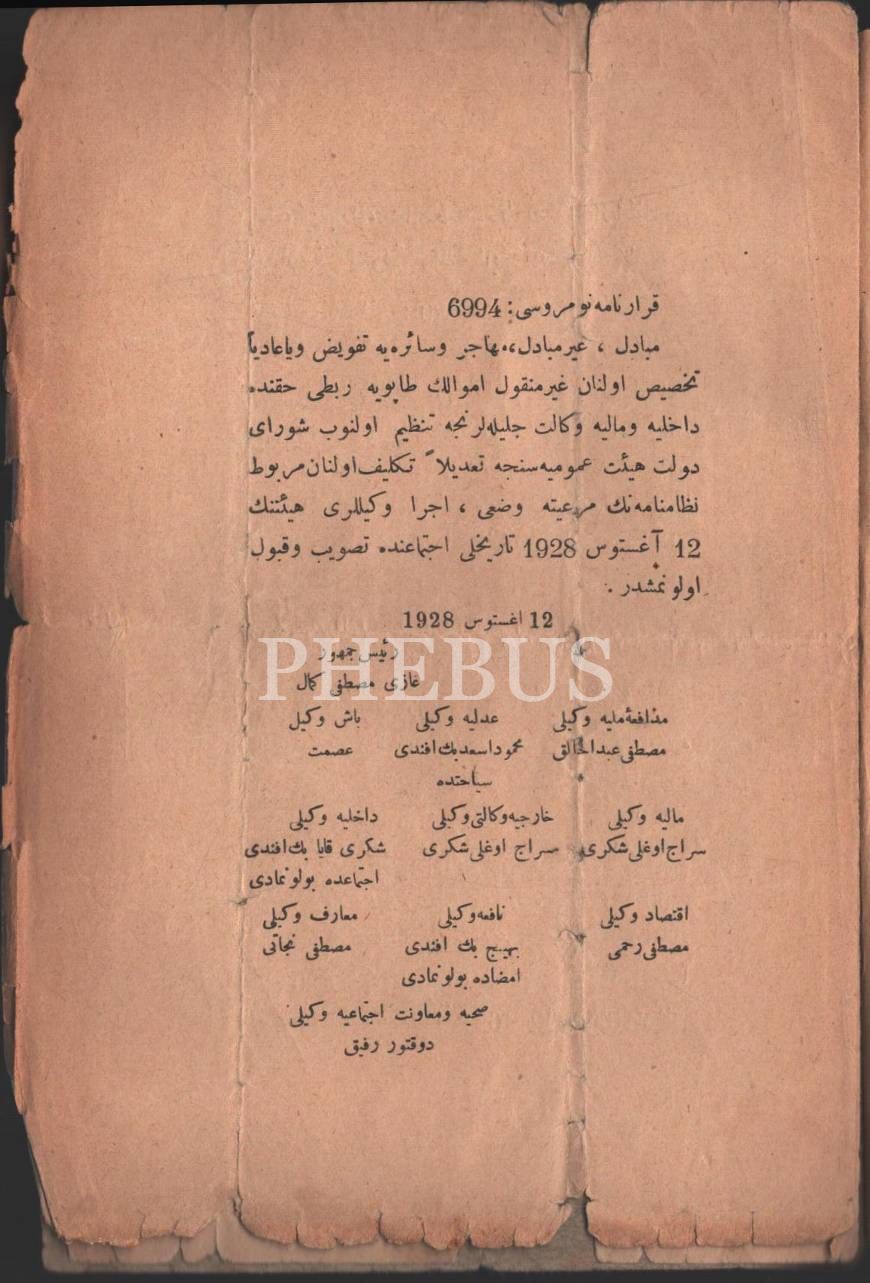 قرارنامه نومروسی: 6994
مبادل ، غیرمبادل، مهاجر وسائره‌یه تفویض ویاعادیاً
تخصیص اولنان غیرمنقول اموالك طاپویه ربطی حقنده
داخلیه ومالیه وکالت جلیله‌لرنجه تنظیم اولنوب شورای
دولت هیئت عمومیه‌سنجه تعدیلاً تکلیف اولنان مربوط
نظامنامه‌نك مرعیته وضعی ، اجرا وکیللری هیئتنك
12 آغستوس 1928 تاریخلی اجتماعنده تصویب وقبول
اولونمشدر .
12 اغستوس 1928
رئیس جمهور
غازی مصطفی کمال
مدافعۀ ملیه وکیلی عدلیه وکیلی باش وکیل
مصطفی عبدالخالق محمود اسعد بك افندی عصمت
سیاحتده
مالیه وکیلی خارجیه وکالتی وکیلی داخلیه وکیلی
سراج اوغلی شکری سراج اوغلی شکری شکری قایا بك افندی
اجتماعده بولونمادی
اقتصاد وکیلی نافعه وکیلی معارف وکیلی
مصطفی رحمی بهیج بك افندی مصطفی نجاتی
امضاده بولونمادی
صحیه ومعاونت اجتماعیه وکیلی
دوقتور رفیق
PHEBUS